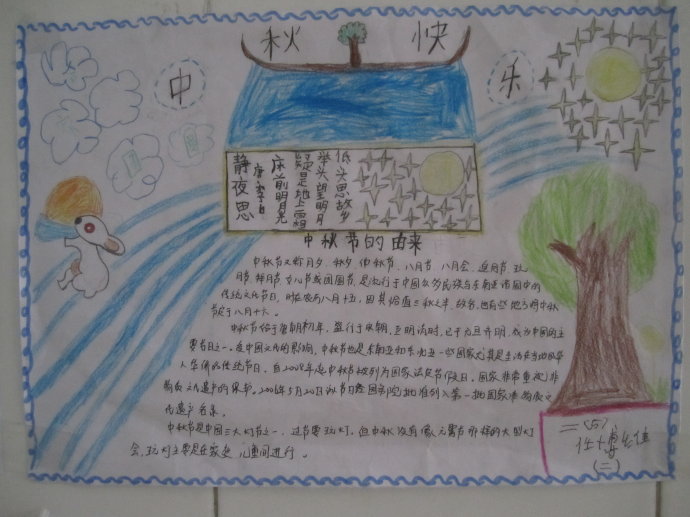 中秋快乐
静夜思
唐 李白
床前明月光
疑是地上霜
举头望明月
低头思故乡
中秋节的由来
中秋节又称月夕、秋夕、仲秋节、八月节、八月会、追月节、玩
月节、拜月节、女儿节或团圆节，是流行于中国众多民族与东南亚诸国中的
传统文化节日，时在农历八月十五，因其恰值三秋之半，故名，也有些地方将中秋
节定于八月十六。
中秋节始于唐朝初年，盛行于宋朝，至明清时，已与元旦齐名，成为中国的主
要节日之一。受中国文化的影响，中秋节也是东南亚和东北亚一些国家尤其是生活在当地的华
人华侨的传统节日。自2008年起中秋节被列为国家法定节假日。国家非常重视非
物质文化遗产的保护。2006年5月20日该节日经国务院批准列入第一批国家非物质文
化遗产名录。
中秋节是中国三大灯节之一，过节要玩灯。但中秋没有像元宵节那样的大型灯
会，玩灯主要是在家庭、儿童间进行。
三(5)
(二)